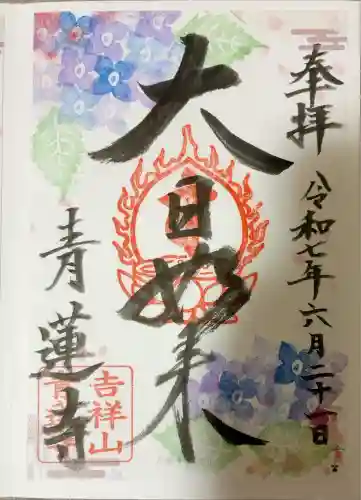 奉拝
令和七年六月二十一日
大日如来
青蓮寺
吉祥山